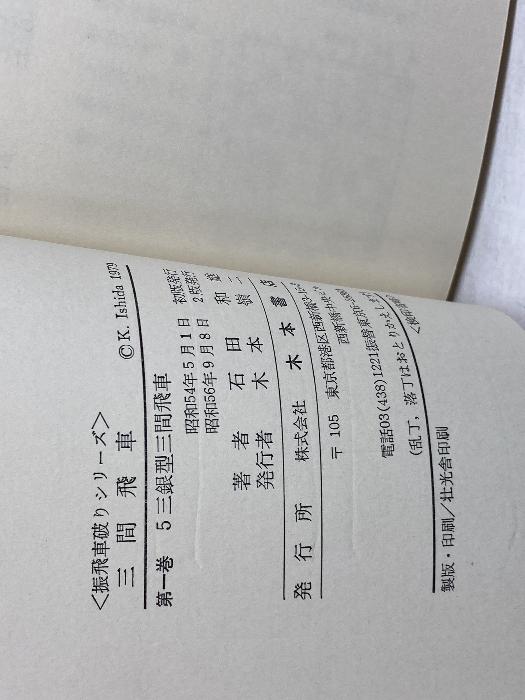 <振飛車破りシリーズ>
三間飛車 © K. Ishida 1979
第一巻 5三銀型三間飛車
昭和54年5月1日 初版発行
昭和56年9月8日 2版発行
著者 石田和雄
発行者 木本
発行所 株式会社 木本書店
〒105 東京都港区西新橋
西新橋中央
電話03(438)1221振替東京
(乱丁，落丁はおとりかえします)
製版・印刷/壮光舎印刷